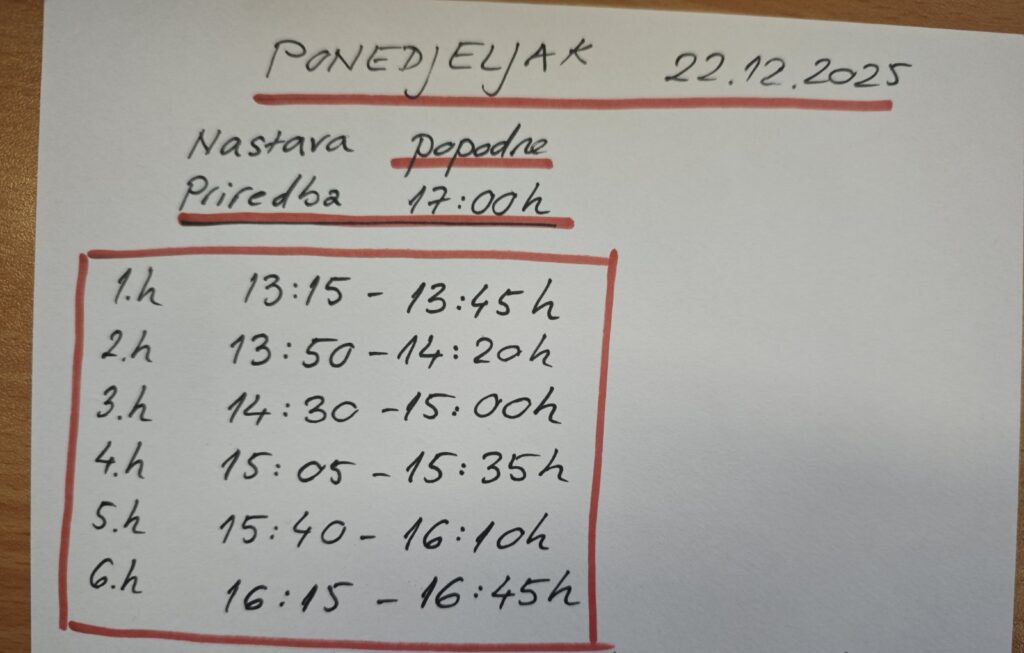 PONEDJELJAK 22.12.2025
Nastava popodne
Priredba 17:00h
1.h 13:15 - 13:45h
2.h 13:50 - 14:20h
3.h 14:30 - 15:00h
4.h 15:05 - 15:35h
5.h 15:40 - 16:10h
6.h 16:15 - 16:45h